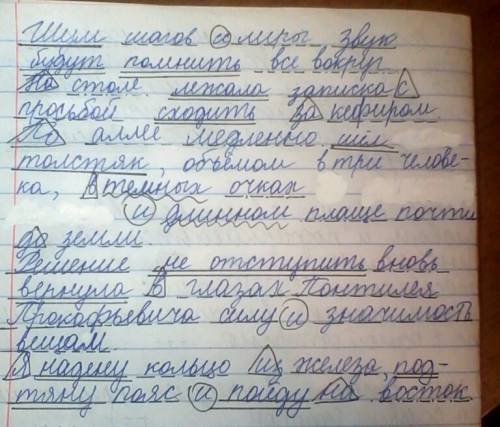 Шум шагов и лиры звук
будут помнить все вокруг
На столе лежала записка с
просьбой сходить за кефиром
По аллее медленно шёл
толстяк, объёмом в три челове-
ка, в темных очках
и длинном плаще почти
до земли.
Решение не отступить вновь
вернула в глазах Понтилея
Прокафьевича силу и значимость
вещам.
Я надену кольцо из железа, под-
тяну пояс и пойду на восток.